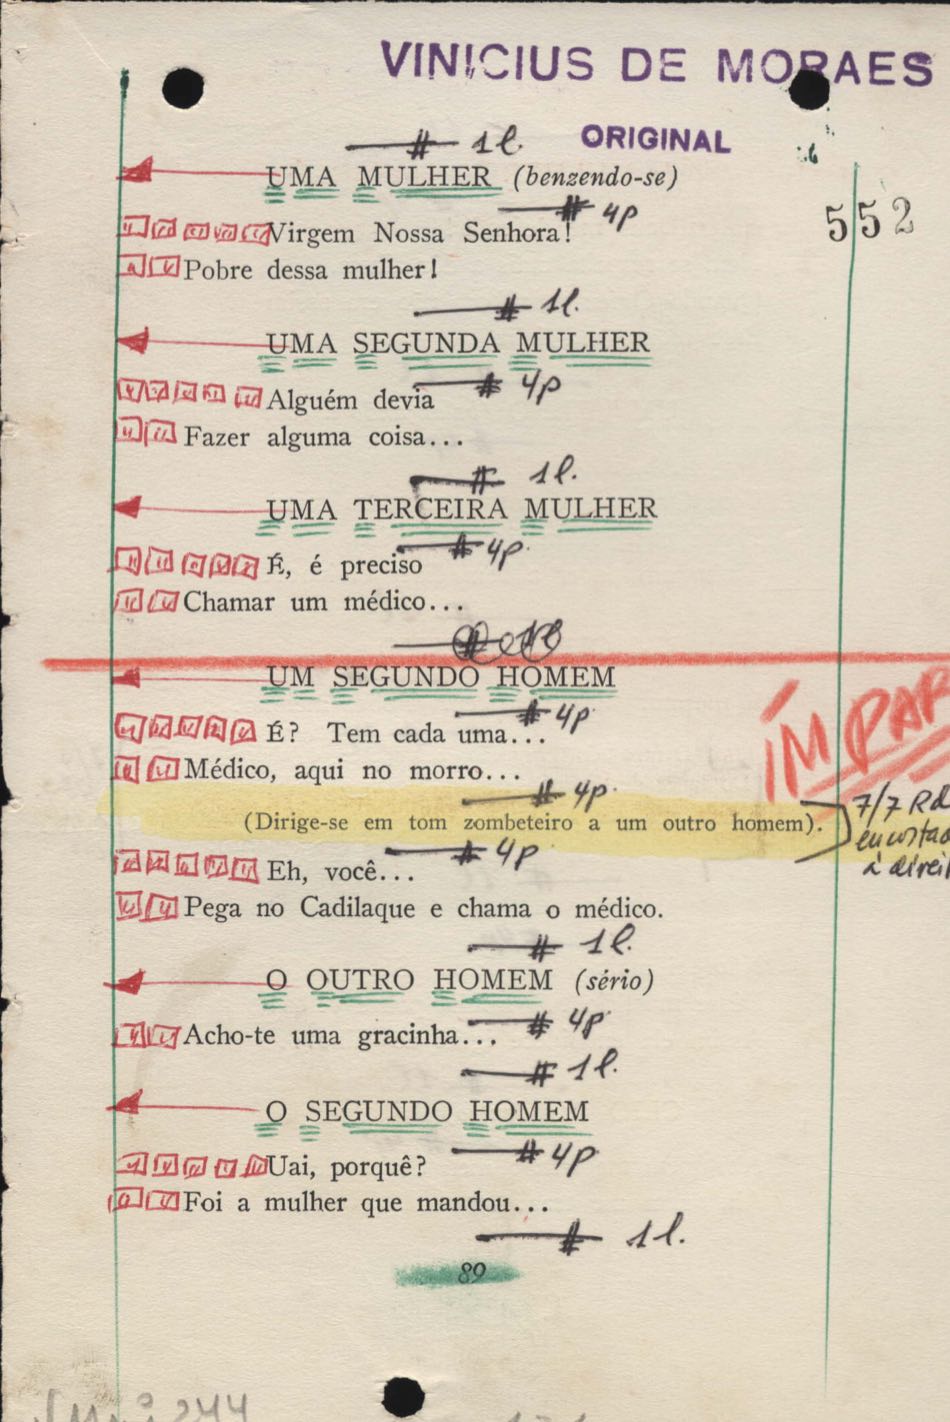 VINICIUS DE MORAES
# 1 l.
ORIGINAL
UMA MULHER (benzendo-se)
# 4p
552
Virgem Nossa Senhora!
Pobre dessa mulher!
# 1l.
UMA SEGUNDA MULHER
# 4p
Alguém devia
Fazer alguma coisa...
# 1l.
UMA TERCEIRA MULHER
# 4p.
É, é preciso
Chamar um médico...
UM SEGUNDO HOMEM
ÍMPAR
# 4p
É? Tem cada uma...
Médico, aqui no morro...
# 4p.
7/7 Rd
(Dirige-se em tom zombeteiro a um outro homem).
à direit
# 4p
Eh, você...
Pega no Cadilaque e chama o médico.
# 1l.
O OUTRO HOMEM (sério)
# 4p.
Acho-te uma gracinha...
# 1l.
O SEGUNDO HOMEM
# 4p
Uai, porquê?
Foi a mulher que mandou...
# 1l.
89